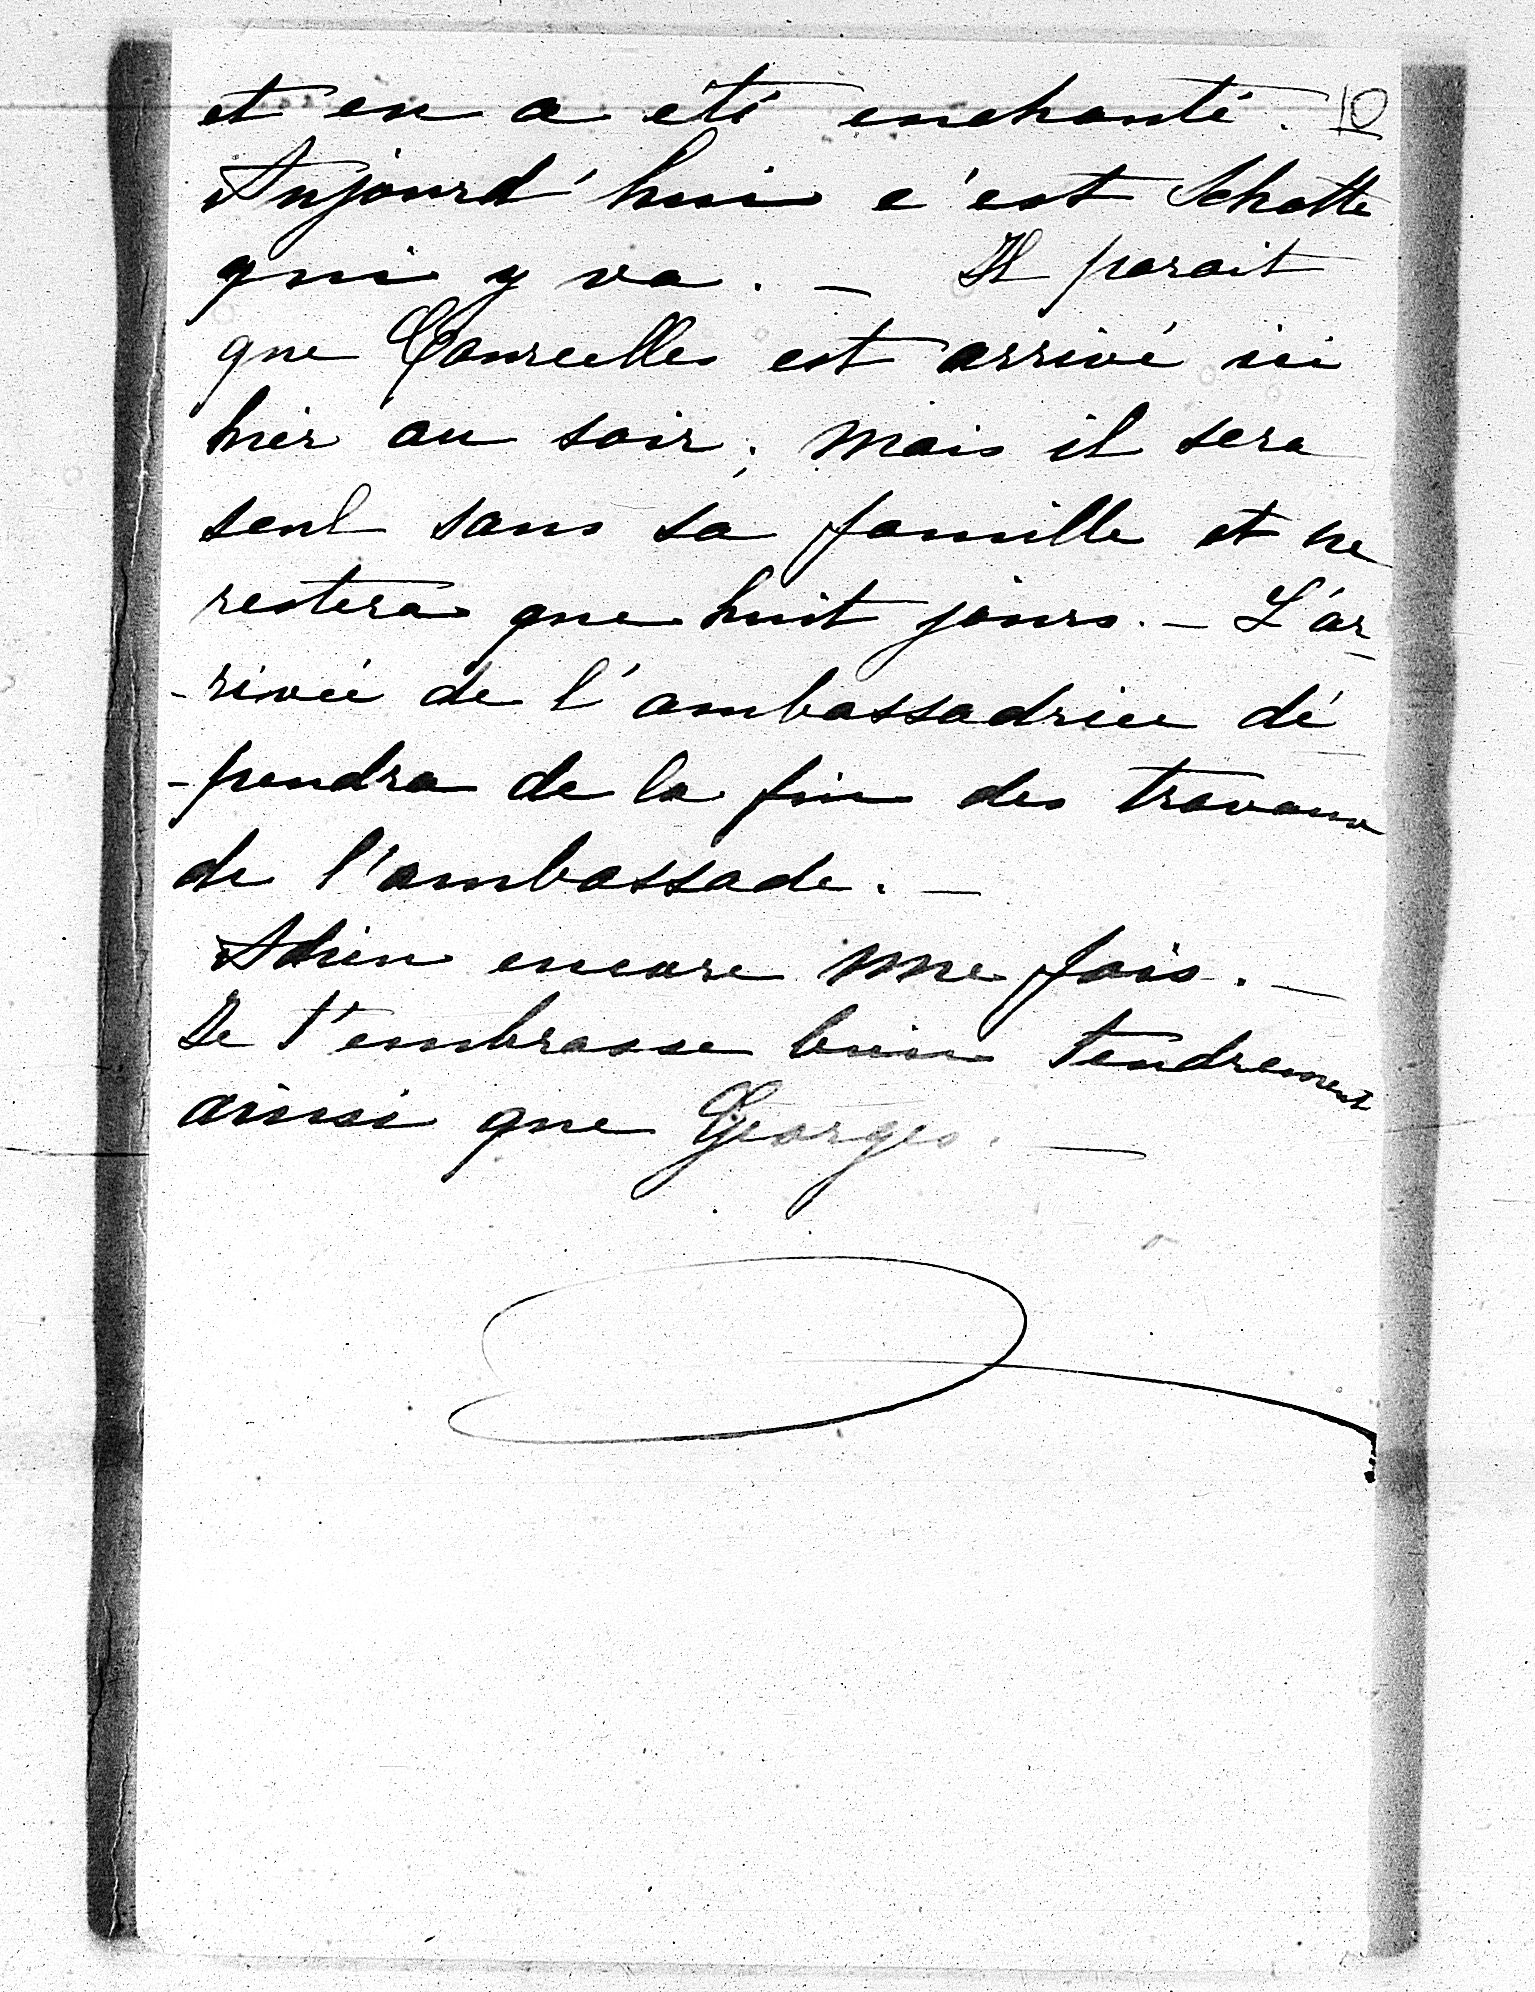 et en a été enchanté. 10
Aujourd'hui c'est Schotte
qui y va. — Il parait
que Courcelles est arrivé ici
hier au soir; mais il sera
seul sans sa famille et ne
restera que huit jours. — L'ar
-rivée de l'ambassadrice dé
-pendra de la fin des travaux
de l'ambassade. —
Adieu encore une fois. —
Je t'embrasse bien tendrement
ainsi que Georges. —